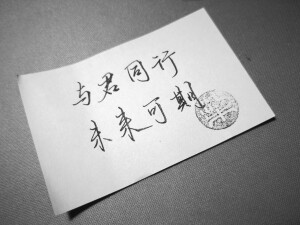 与君同行
未来可期